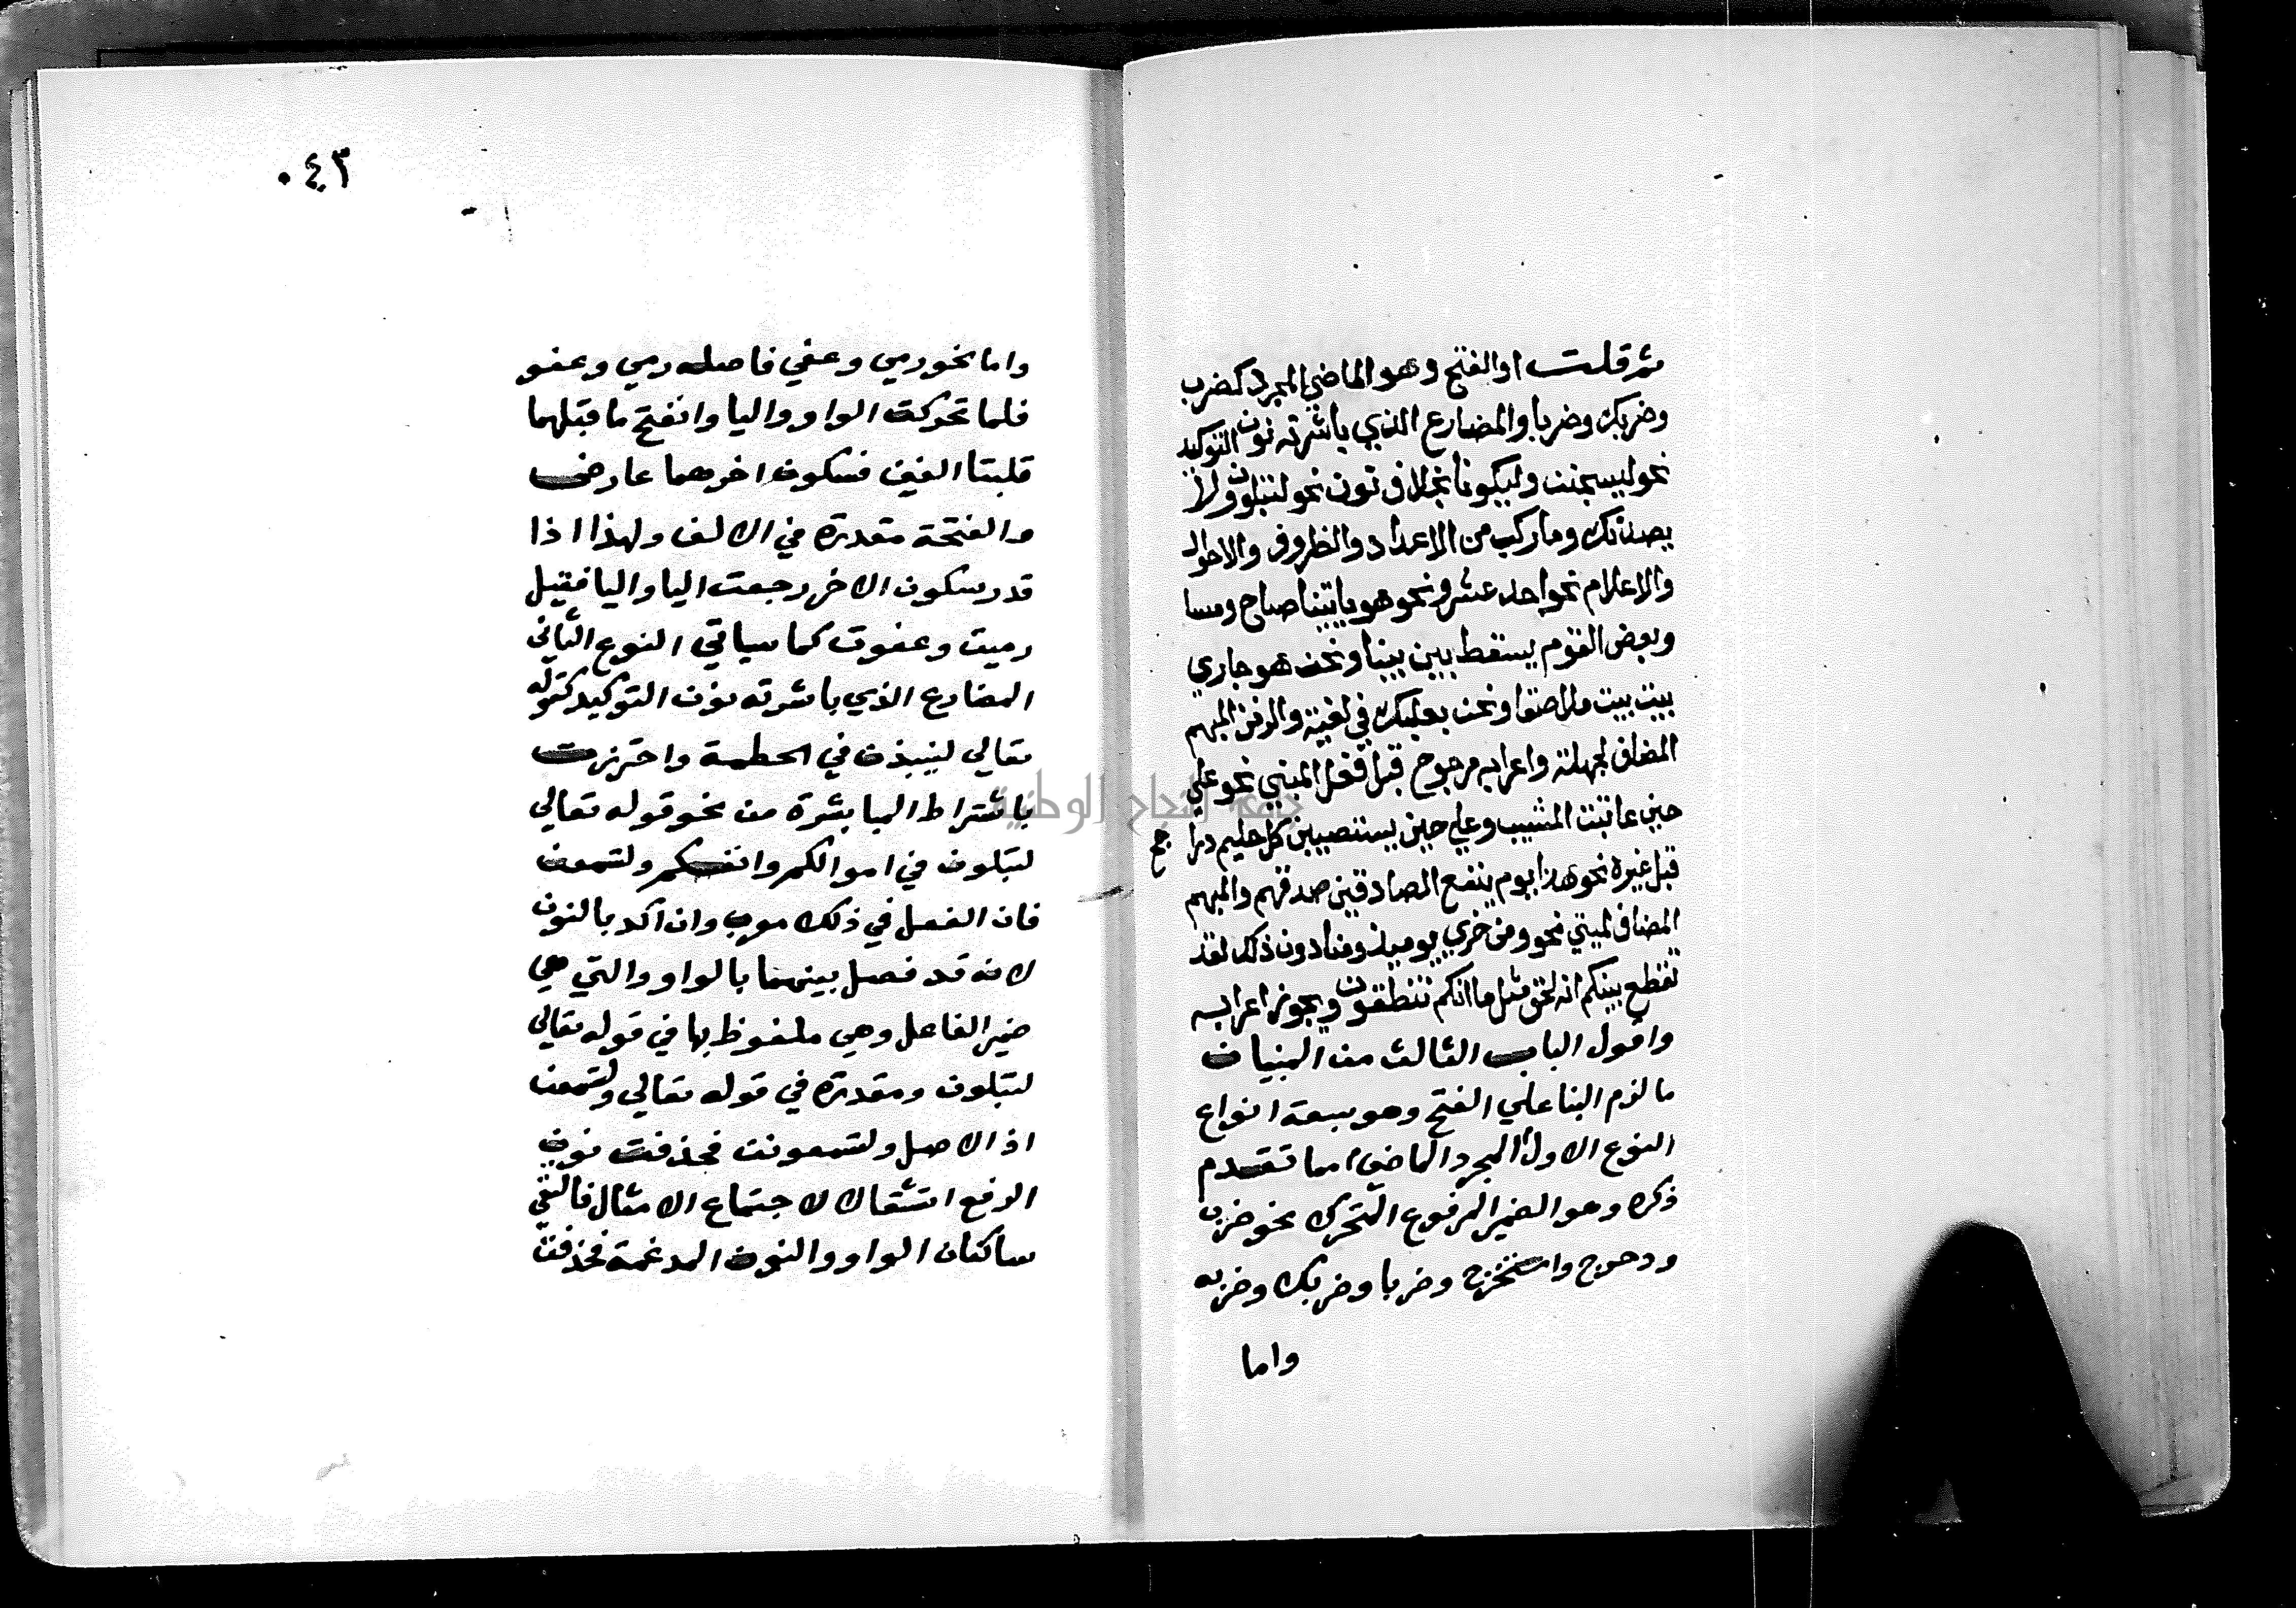 ثم قلت او الفتح وهو الماضي المجرد كضرب
وضربك وضربا والمضارع الذي باشرته نون التوكيد
نحو ليسجنن وليكونا بخلاف نون نحو لتبلون ولا
يصدنك وما ركب من الاعداد والظروف والاحوال
والاعلام نحو احد عشر ونحو هو ياتينا صباح ومسا
وبعض القوم يسقط بين بينا ونحو هو جاري
بيت بيت ملاصقا ونحو بعلبك في لغية والزمن المبهم
المضاف لجملة واعرابه مرجوح قبل فعل المبني نحو علي
حين عاتبت المشيب وعلي حين يستصبين كل حليم
قبل غيره نحو هذا يوم ينفع الصادقين صدقهم والمبهم
المضاف لمبني نحو ومن خزي يوميذ ومنا دون ذلك لقد
تقطع بينكم انه لحق مثل ما انكم تنطقون ويجوز اعرابه
واقول الباب الثالث من المبنيات
ما لزم البنا علي الفتح وهو سبعة انواع
النوع الاول الماضي المجرد مما تقدم
ذكره وهو الضمير المرفوع المتحرك نحو ضرب
ودحرج واستخرج وضربا وضربك وضربه
واما
٠٤٣
واما نحو رمي وعفي فاصله رمي وعفو
فلما تحركت الواو واليا وانفتح ما قبلهما
قلبتا الفين فسكون اخرهما عارض
والفتحة مقدرة في الالف ولهذا اذا
قدر سكون الاخر رجعت اليا واليا فقيل
رميت وعفوت كما سياتي النوع الثاني
المضارع الذي باشرته نون التوكيد كقوله
تعالي لينبذن في الحطمة واحترزت
باشتراط المباشرة من نحو قوله تعالي
لتبلون في اموالكم وانفسكم ولتسمعن
فان الفعل في ذلك معرب وان اكد بالنون
لانه قد فصل بينهما بالواو والتي هي
ضمير الفاعل وهي ملفوظ بها في قوله تعالي
لتبلون ومقدرة في قوله تعالي ولتسمعن
اذ الاصل ولتسمعونن فحذفت نون
الرفع استثقالا لاجتماع الامثال فالتقي
ساكنان الواو والنون المدغمة فحذفت
جامعة النجاح الوطنية